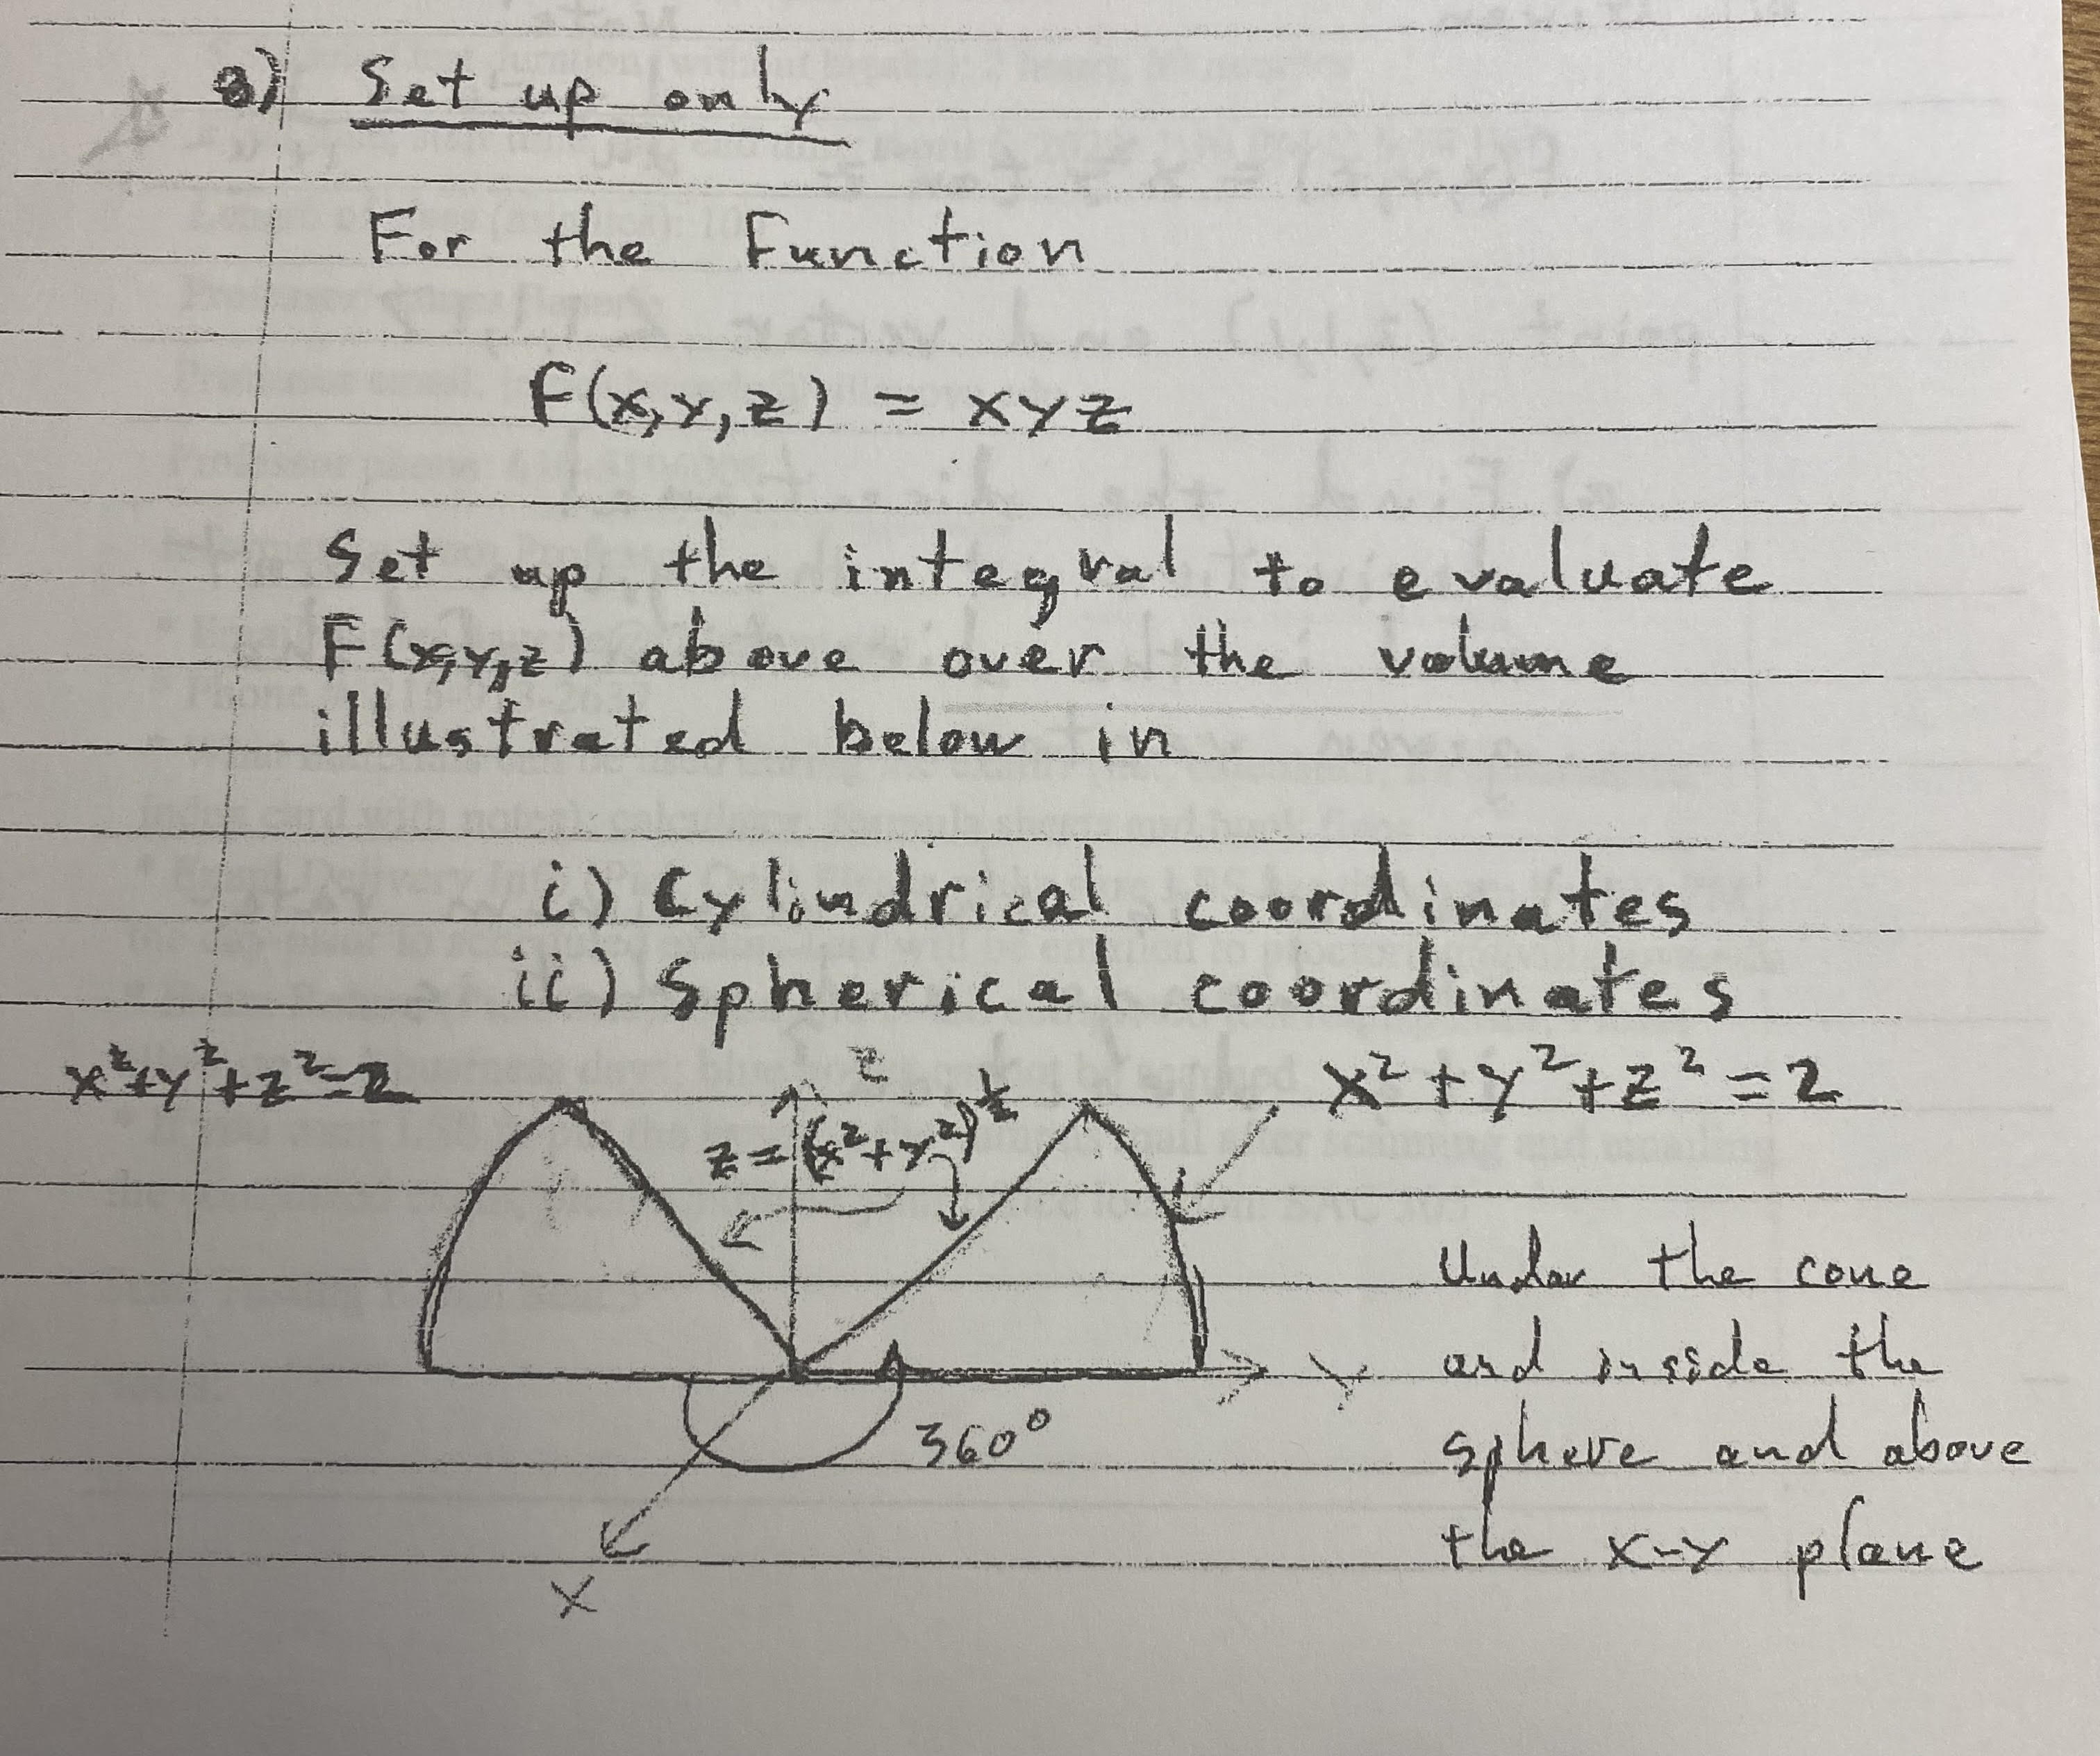 3) Set up only
For the Function
F(x,y,z) = xyz
Set up the integral to evaluate
F(x,y,z) above over the volume
illustrated below in
i) Cylindrical coordinates
ii) Spherical coordinates
x²+y²+z²=2
z
x²+y²+z²=2
z=(x²+y²)^½
Under the cone
and inside the
sphere and above
the x-y plane
y
360°
x